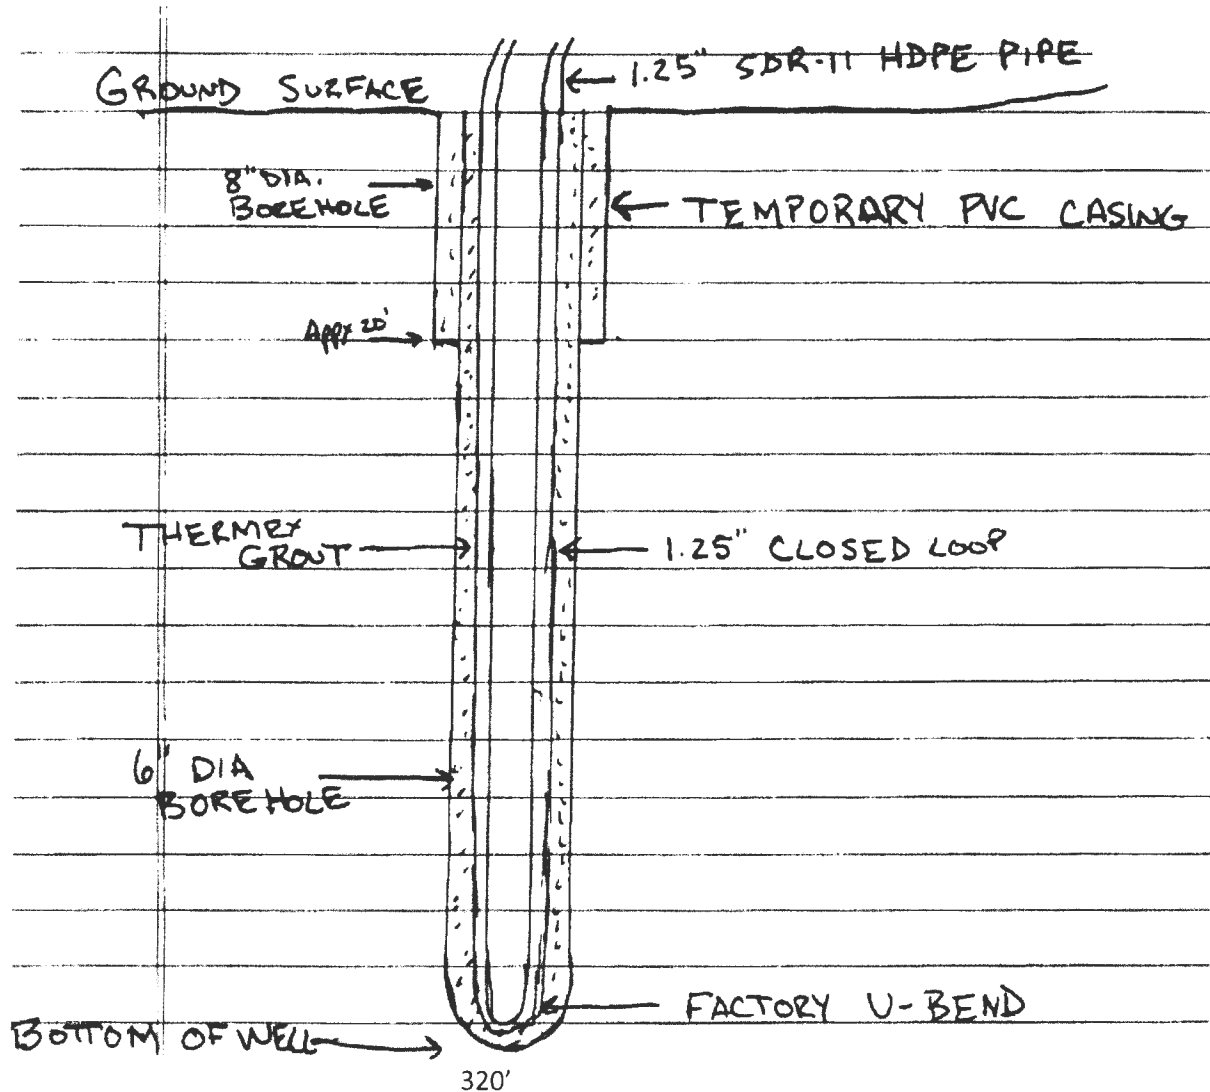 1.25" SDR-11 HDPE PIPE
GROUND SURFACE
8" DIA.
BOREHOLE
TEMPORARY PVC CASING
Appx 20'
THERMEX
GROUT
1.25" CLOSED LOOP
6" DIA
BOREHOLE
FACTORY U-BEND
BOTTOM OF WELL
320'